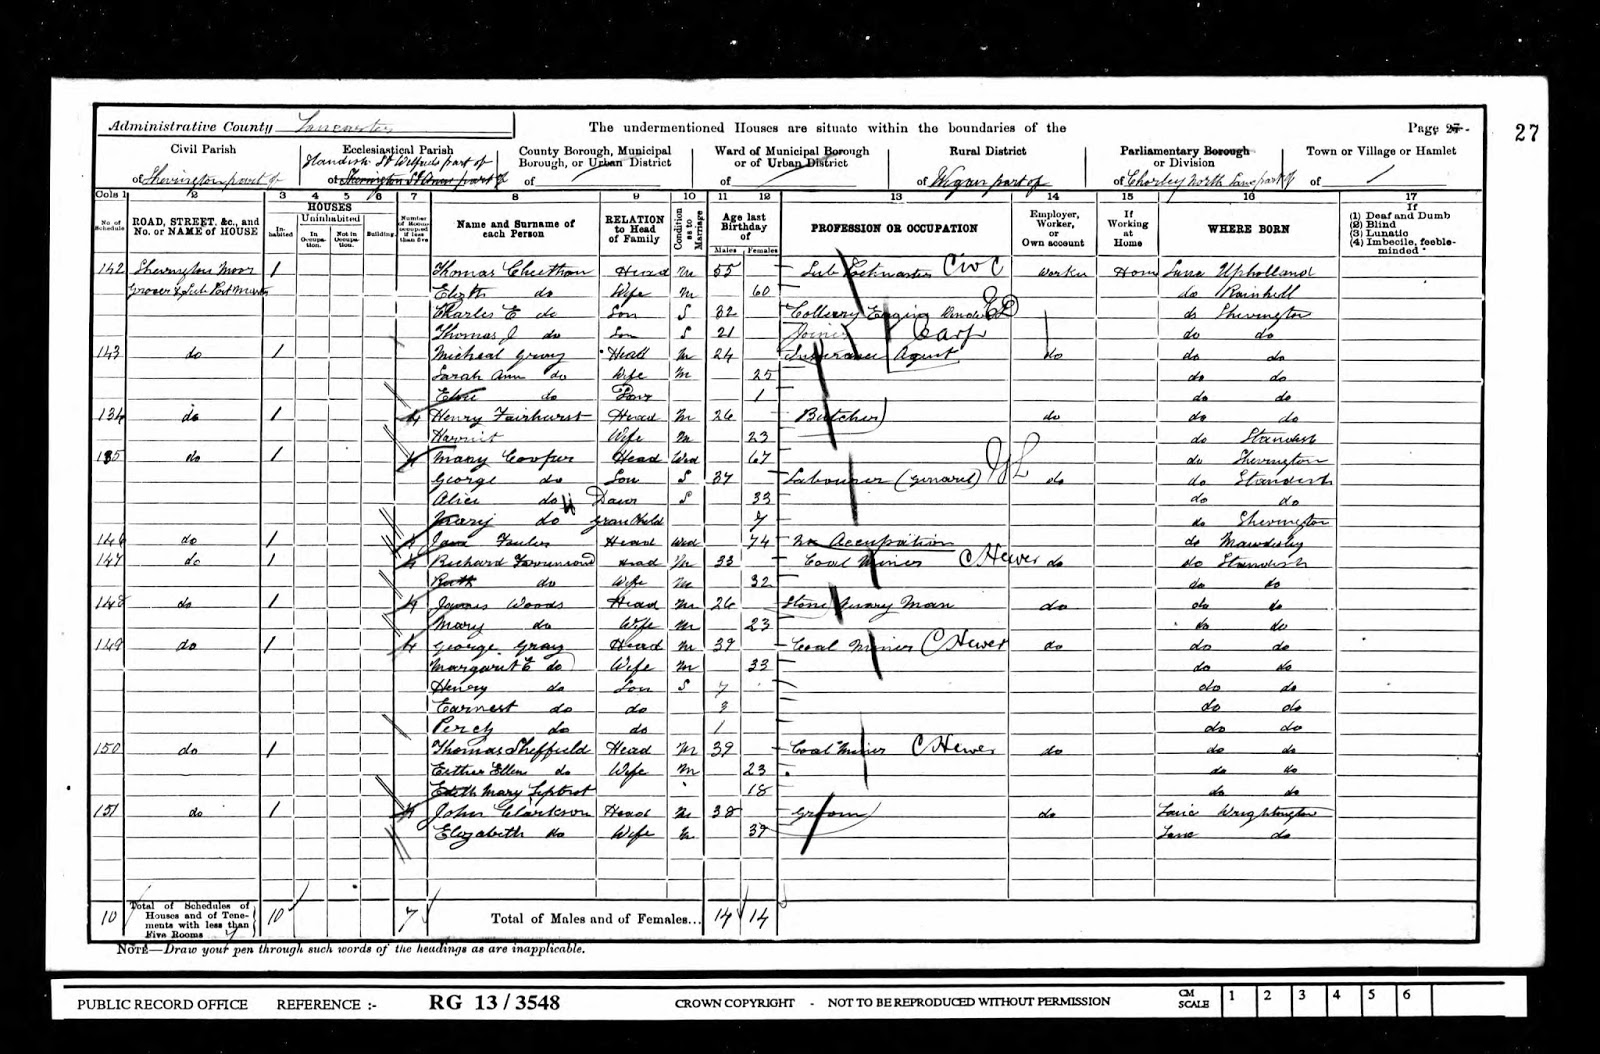 Administrative County Lancaster
The undermentioned Houses are situate within the boundaries of the
Page 27
27
Civil Parish
of Shevington part of
Ecclesiastical Parish
Standish St Wilfrids part of
of Shevington St Annes part of
County Borough, Municipal Borough, or Urban District
of
Ward of Municipal Borough or of Urban District
of
Rural District
of Wigan part of
Parliamentary Borough or Division
of Chorley North Lanc part of
Town or Village or Hamlet
of /
Cols 1 2 3 4 5 6 7 8 9 10 11 12 13 14 15 16 17
No. of Schedule
ROAD, STREET, &c., and No. or NAME of HOUSE
HOUSES
Inhabited
Uninhabited
In Occupation.
Not in Occupation.
Building.
Number of Rooms occupied if less than five
Name and Surname of each Person
RELATION to Head of Family
Condition as to Marriage
Age last Birthday of
Males Females
PROFESSION OR OCCUPATION
Employer, Worker, or Own account
If Working at Home
WHERE BORN
If
(1) Deaf and Dumb
(2) Blind
(3) Lunatic
(4) Imbecile, feeble-minded
142 Shevington Moor 1 Thomas Cheetham Head M 55 Sub Postmaster Civ C Worker Home Lanc Upholland
Grocer & Sub Post Master Elizth do Wife M 60 do Rainhill
Charles E do Son S 32 Colliery Engine do Shevington
Thomas J do Son S 21 Joiner Carp do do
143 do 1 Micheal Gray Head M 24 Insurance Agent do do do
Sarah Ann do Wife M 25 do do
Elsie do Daur 1 do do
134 do 1 4 Henry Fairhurst Head M 26 Butcher do do do
Harriet Wife M 23 do Standish
135 do 1 4 Mary Cooper Head Wid 67 do Shevington
George do Son S 37 Labourer (General) GL do do Standish
Alice do Daur S 33 do do
Mary do GranChild 7 do Shevington
146 do 1 4 Jane Head Wid 74 No Accupation do Mawdesley
147 do 1 4 Richard Head M 33 Coal Miner C Hewer do do Standish
Ruth do Wife M 32 do do
148 do 1 4 James Woods Head M 26 Stone Quary Man do do do
Mary do Wife M 23 do do
149 do 1 4 George Gray Head M 39 Coal Miner C Hewer do do do
Margaret E do Wife M 33 do do
Henry do Son S 7 do do
Earnest do do 3 do do
Percy do do 1 do do
150 do 1 Thomas Sheffield Head M 39 Coal Miner C Hewer do do do
Esther Ellen do Wife M 23 do do
Edith Mary 18 do do
151 do 1 4 John Clarkson Head M 38 Groom do Lanc Wrightington
Elizabeth do Wife M 39 Lanc do
10 Total of Schedules of Houses and of Tenements with less than Five Rooms 7 10 7 Total of Males and of Females... 14 14
NOTE—Draw your pen through such words of the headings as are inapplicable.
PUBLIC RECORD OFFICE REFERENCE :- RG 13 / 3548 CROWN COPYRIGHT - NOT TO BE REPRODUCED WITHOUT PERMISSION CM SCALE 1 2 3 4 5 6